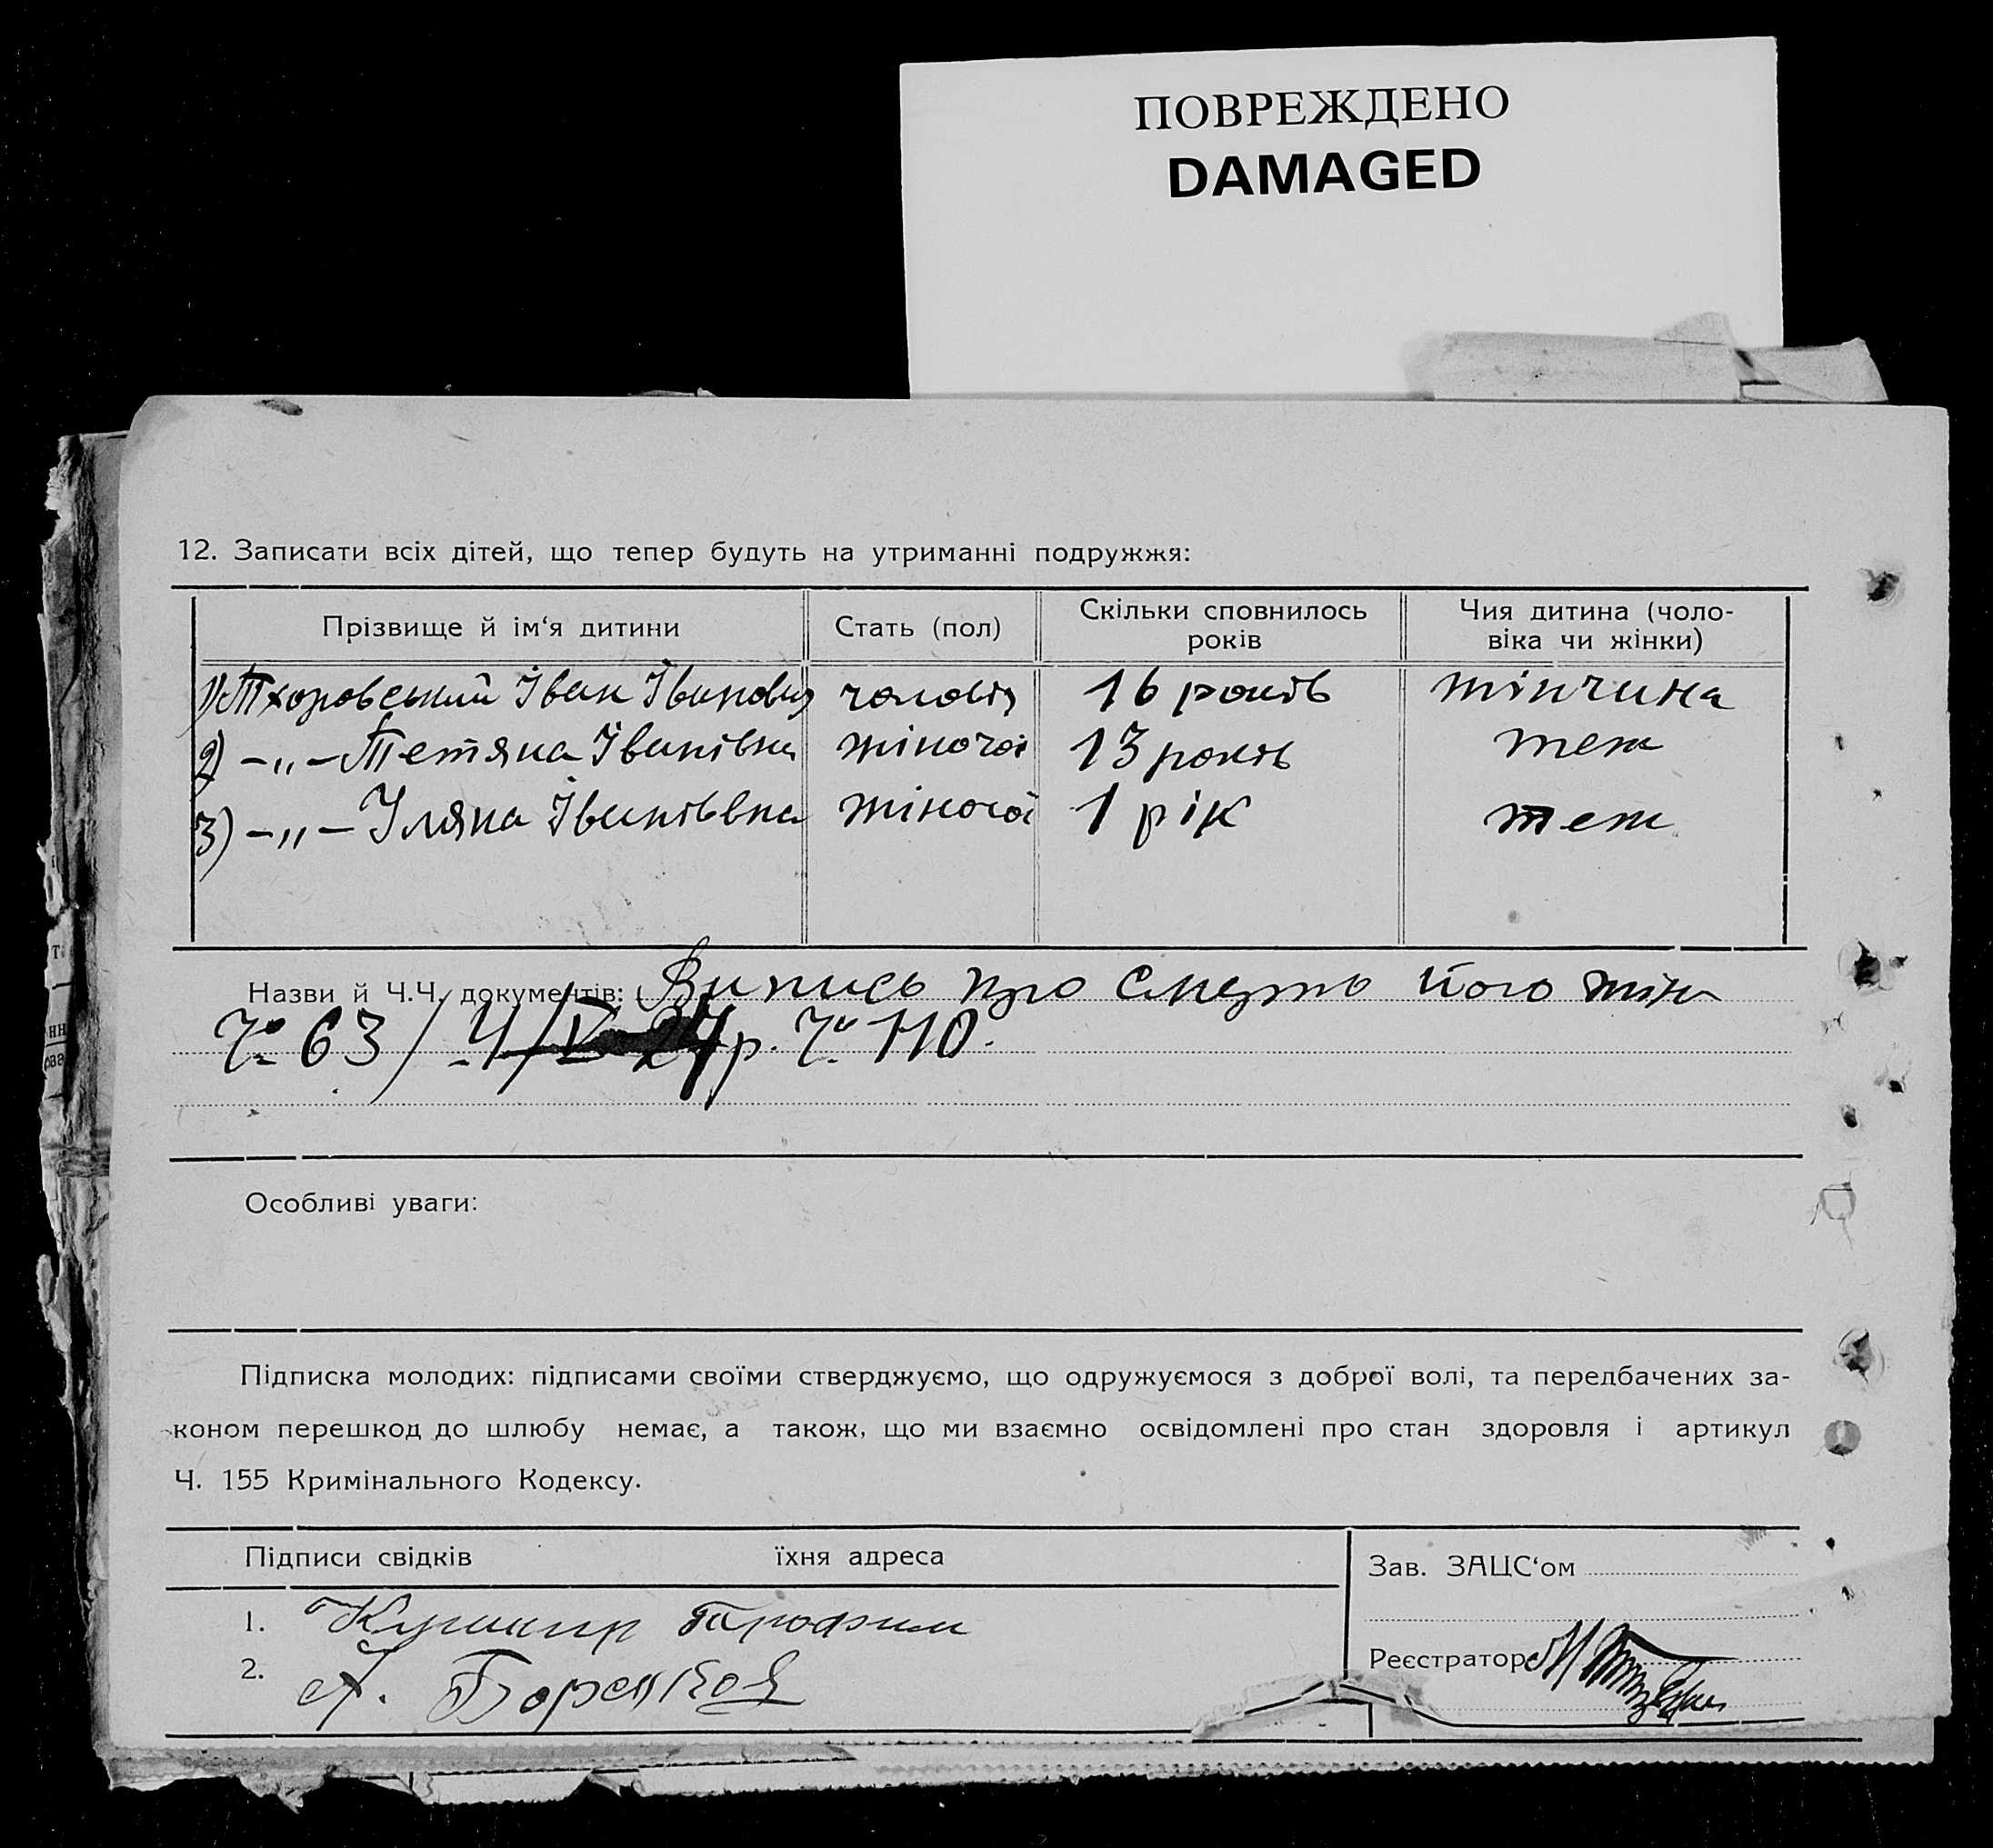 ПОВРЕЖДЕНО
DAMAGED
12. Записати всіх дітей, що тепер будуть на утриманні подружжя:
Прізвище й ім‘я дитини Стать (пол) Скільки сповнилось років Чия дитина (чоловіка чи жінки)
1) Тхоровський Іван Іванович чоловіч 16 років жінчина
2) -„- Тетяна Іванівна жіночої 13 років теж
3) -„- Уляна Іванівна жіночої 1 рік теж
Назви й Ч.Ч. документів: Випись про смерть його жін
Ч. 63 / р. Ч. 110.
Особливі уваги:
Підписка молодих: підписами своїми стверджуємо, що одружуємося з доброї волі, та передбачених за-
коном перешкод до шлюбу немає, а також, що ми взаємно освідомлені про стан здоровля і артикул
Ч. 155 Кримінального Кодексу.
Підписи свідків їхня адреса
Зав. ЗАЦС‘ом
1. Кушнир Трофим
2. А.
Реєстратор